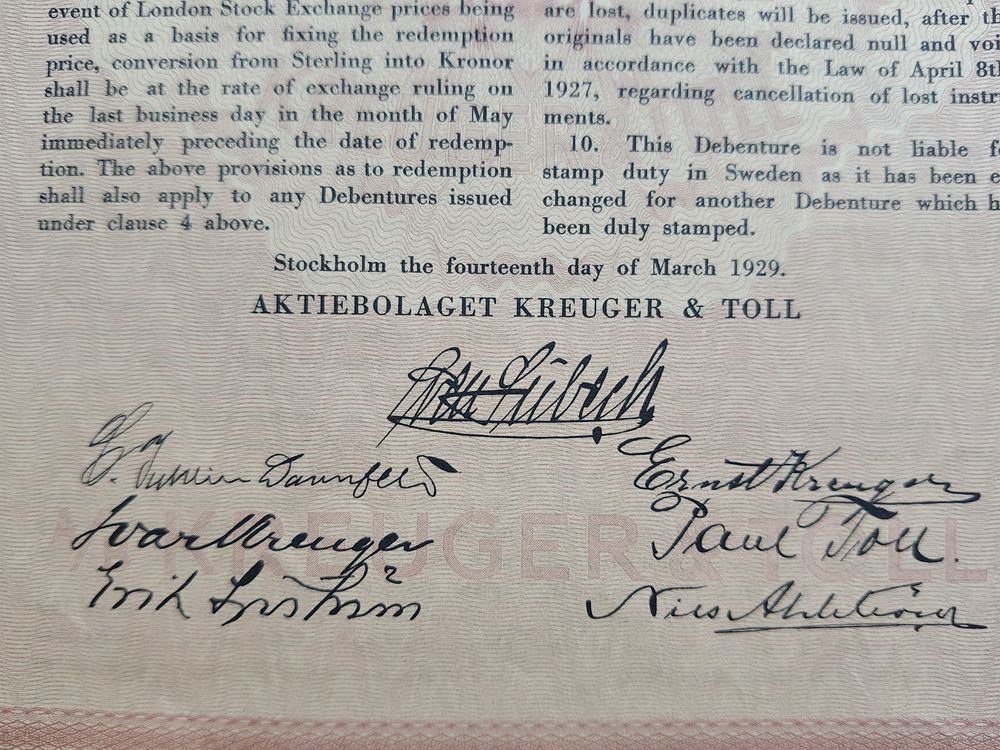 event of London Stock Exchange prices being
used as a basis for fixing the redemption
price, conversion from Sterling into Kronor
shall be at the rate of exchange ruling on
the last business day in the month of May
immediately preceding the date of redemp-
tion. The above provisions as to redemption
shall also apply to any Debentures issued
under clause 4 above.
are lost, duplicates will be issued, after
originals have been declared null and
in accordance with the Law of April
1927, regarding cancellation of lost
ments.
10. This Debenture is not liable
stamp duty in Sweden as it has been
changed for another Debenture which
been duly stamped.
Stockholm the fourteenth day of March 1929.
AKTIEBOLAGET KREUGER & TOLL
Ernst Kreuger
Ivar Kreuger
Paul Toll.
Erik
Nils Ahlström
KREUGER & TOLL